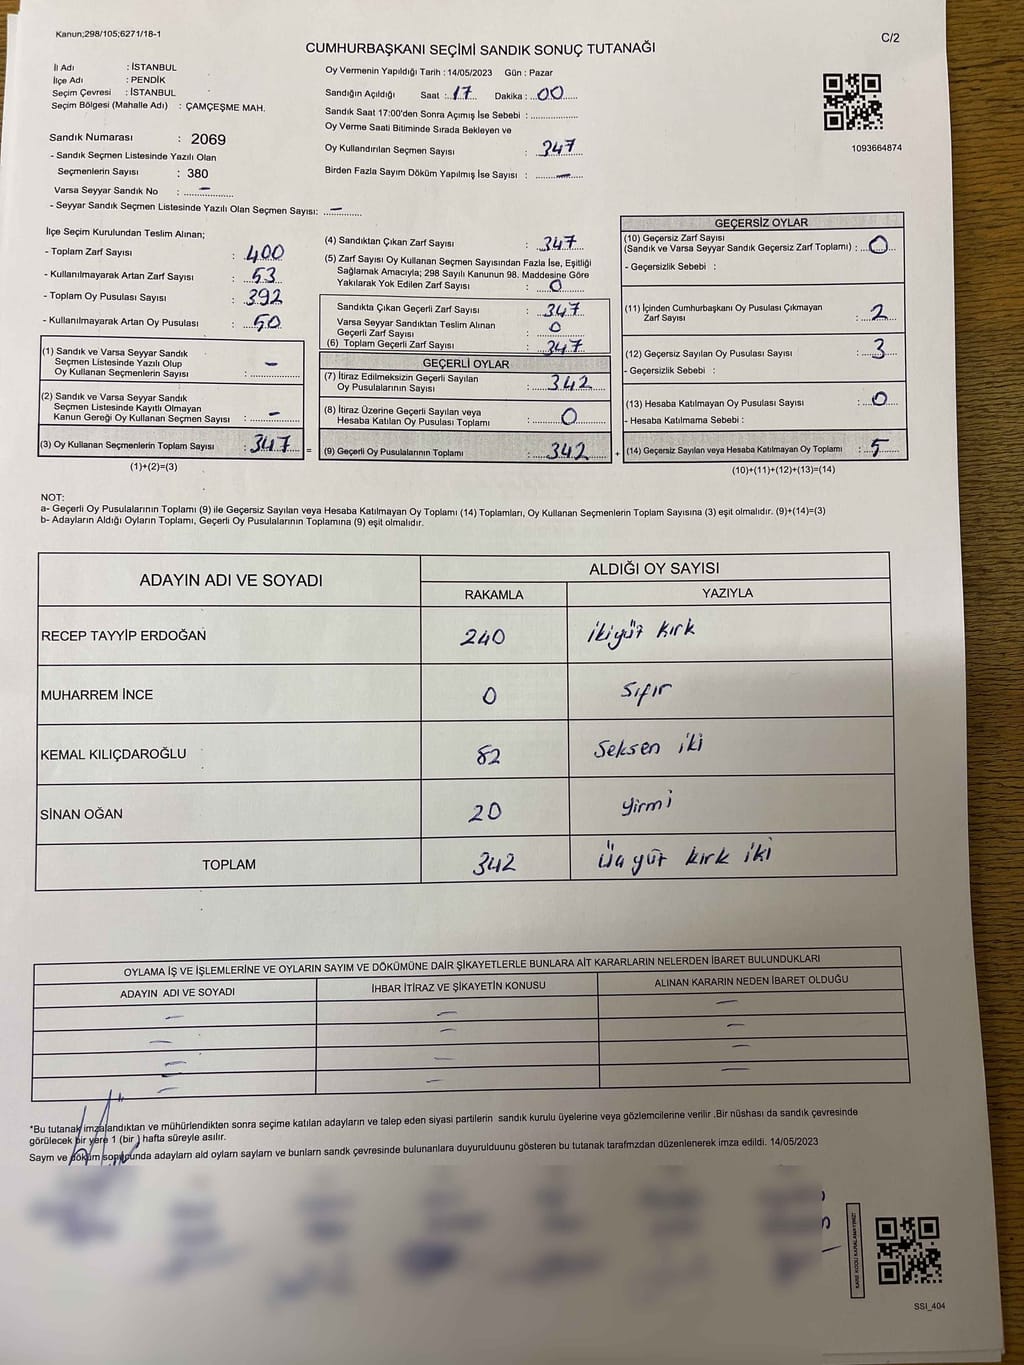 Kanun;298/105;6271/18-1
C/2
CUMHURBAŞKANI SEÇİMİ SANDIK SONUÇ TUTANAĞI
İl Adı : İSTANBUL
İlçe Adı : PENDİK
Seçim Çevresi : İSTANBUL
Seçim Bölgesi (Mahalle Adı) : ÇAMÇEŞME MAH.
Sandık Numarası : 2069
- Sandık Seçmen Listesinde Yazılı Olan
Seçmenlerin Sayısı : 380
Varsa Seyyar Sandık No : –
- Seyyar Sandık Seçmen Listesinde Yazılı Olan Seçmen Sayısı: –
Oy Vermenin Yapıldığı Tarih : 14/05/2023 Gün : Pazar
Sandığın Açıldığı Saat : 17 Dakika : 00
Sandık Saat 17:00'den Sonra Açımış İse Sebebi :
Oy Verme Saati Bitiminde Sırada Bekleyen ve
Oy Kullandırılan Seçmen Sayısı : 347
Birden Fazla Sayım Döküm Yapılmış İse Sayısı : –
1093664874
İlçe Seçim Kurulundan Teslim Alınan;
- Toplam Zarf Sayısı : 400
- Kullanılmayarak Artan Zarf Sayısı : 53
- Toplam Oy Pusulası Sayısı : 392
- Kullanılmayarak Artan Oy Pusulası : 50
(1) Sandık ve Varsa Seyyar Sandık
Seçmen Listesinde Yazılı Olup
Oy Kullanan Seçmenlerin Sayısı : –
(2) Sandık ve Varsa Seyyar Sandık
Seçmen Listesinde Kayıtlı Olmayan
Kanun Gereği Oy Kullanan Seçmen Sayısı : –
(3) Oy Kullanan Seçmenlerin Toplam Sayısı : 347 =
(1)+(2)=(3)
(4) Sandıktan Çıkan Zarf Sayısı : 347
(5) Zarf Sayısı Oy Kullanan Seçmen Sayısından Fazla İse, Eşitliği
Sağlamak Amacıyla; 298 Sayılı Kanunun 98. Maddesine Göre
Yakılarak Yok Edilen Zarf Sayısı : 0
Sandıkta Çıkan Geçerli Zarf Sayısı : 347
Varsa Seyyar Sandıktan Teslim Alınan
Geçerli Zarf Sayısı : 0
(6) Toplam Geçerli Zarf Sayısı : 347
GEÇERLİ OYLAR
(7) İtiraz Edilmeksizin Geçerli Sayılan
Oy Pusulalarının Sayısı : 342
(8) İtiraz Üzerine Geçerli Sayılan veya
Hesaba Katılan Oy Pusulası Toplamı : 0
(9) Geçerli Oy Pusulalarının Toplamı : 342 +
GEÇERSİZ OYLAR
(10) Geçersiz Zarf Sayısı
(Sandık ve Varsa Seyyar Sandık Geçersiz Zarf Toplamı) : 0
- Geçersizlik Sebebi :
(11) İçinden Cumhurbaşkanı Oy Pusulası Çıkmayan
Zarf Sayısı : 2
(12) Geçersiz Sayılan Oy Pusulası Sayısı : 3
- Geçersizlik Sebebi :
(13) Hesaba Katılmayan Oy Pusulası Sayısı : 0
- Hesaba Katılmama Sebebi :
(14) Geçersiz Sayılan veya Hesaba Katılmayan Oy Toplamı : 5
(10)+(11)+(12)+(13)=(14)
NOT:
a- Geçerli Oy Pusulalarının Toplamı (9) ile Geçersiz Sayılan veya Hesaba Katılmayan Oy Toplamı (14) Toplamları, Oy Kullanan Seçmenlerin Toplam Sayısına (3) eşit olmalıdır. (9)+(14)=(3)
b- Adayların Aldığı Oyların Toplamı, Geçerli Oy Pusulalarının Toplamına (9) eşit olmalıdır.
ADAYIN ADI VE SOYADI ALDIĞI OY SAYISI
RAKAMLA YAZIYLA
RECEP TAYYİP ERDOĞAN 240 ikiyüz kırk
MUHARREM İNCE 0 sıfır
KEMAL KILIÇDAROĞLU 82 Seksen iki
SİNAN OĞAN 20 yirmi
TOPLAM 342 Üçyüz kırk iki
OYLAMA İŞ VE İŞLEMLERİNE VE OYLARIN SAYIM VE DÖKÜMÜNE DAİR ŞİKAYETLERLE BUNLARA AİT KARARLARIN NELERDEN İBARET BULUNDUKLARI
ADAYIN ADI VE SOYADI İHBAR İTİRAZ VE ŞİKAYETİN KONUSU ALINAN KARARIN NEDEN İBARET OLDUĞU
– – –
– – –
– – –
– – –
*Bu tutanak imzalandıktan ve mühürlendikten sonra seçime katılan adayların ve talep eden siyasi partilerin sandık kurulu üyelerine veya gözlemcilerine verilir .Bir nüshası da sandık çevresinde
görülecek bir yere 1 (bir ) hafta süreyle asılır.
Saym ve döküm sonucunda adaylarn ald oylarn saylarn ve bunlarn sandk çevresinde bulunanlara duyurulduunu gösteren bu tutanak tarafmzdan düzenlenerek imza edildi. 14/05/2023
SSI_404